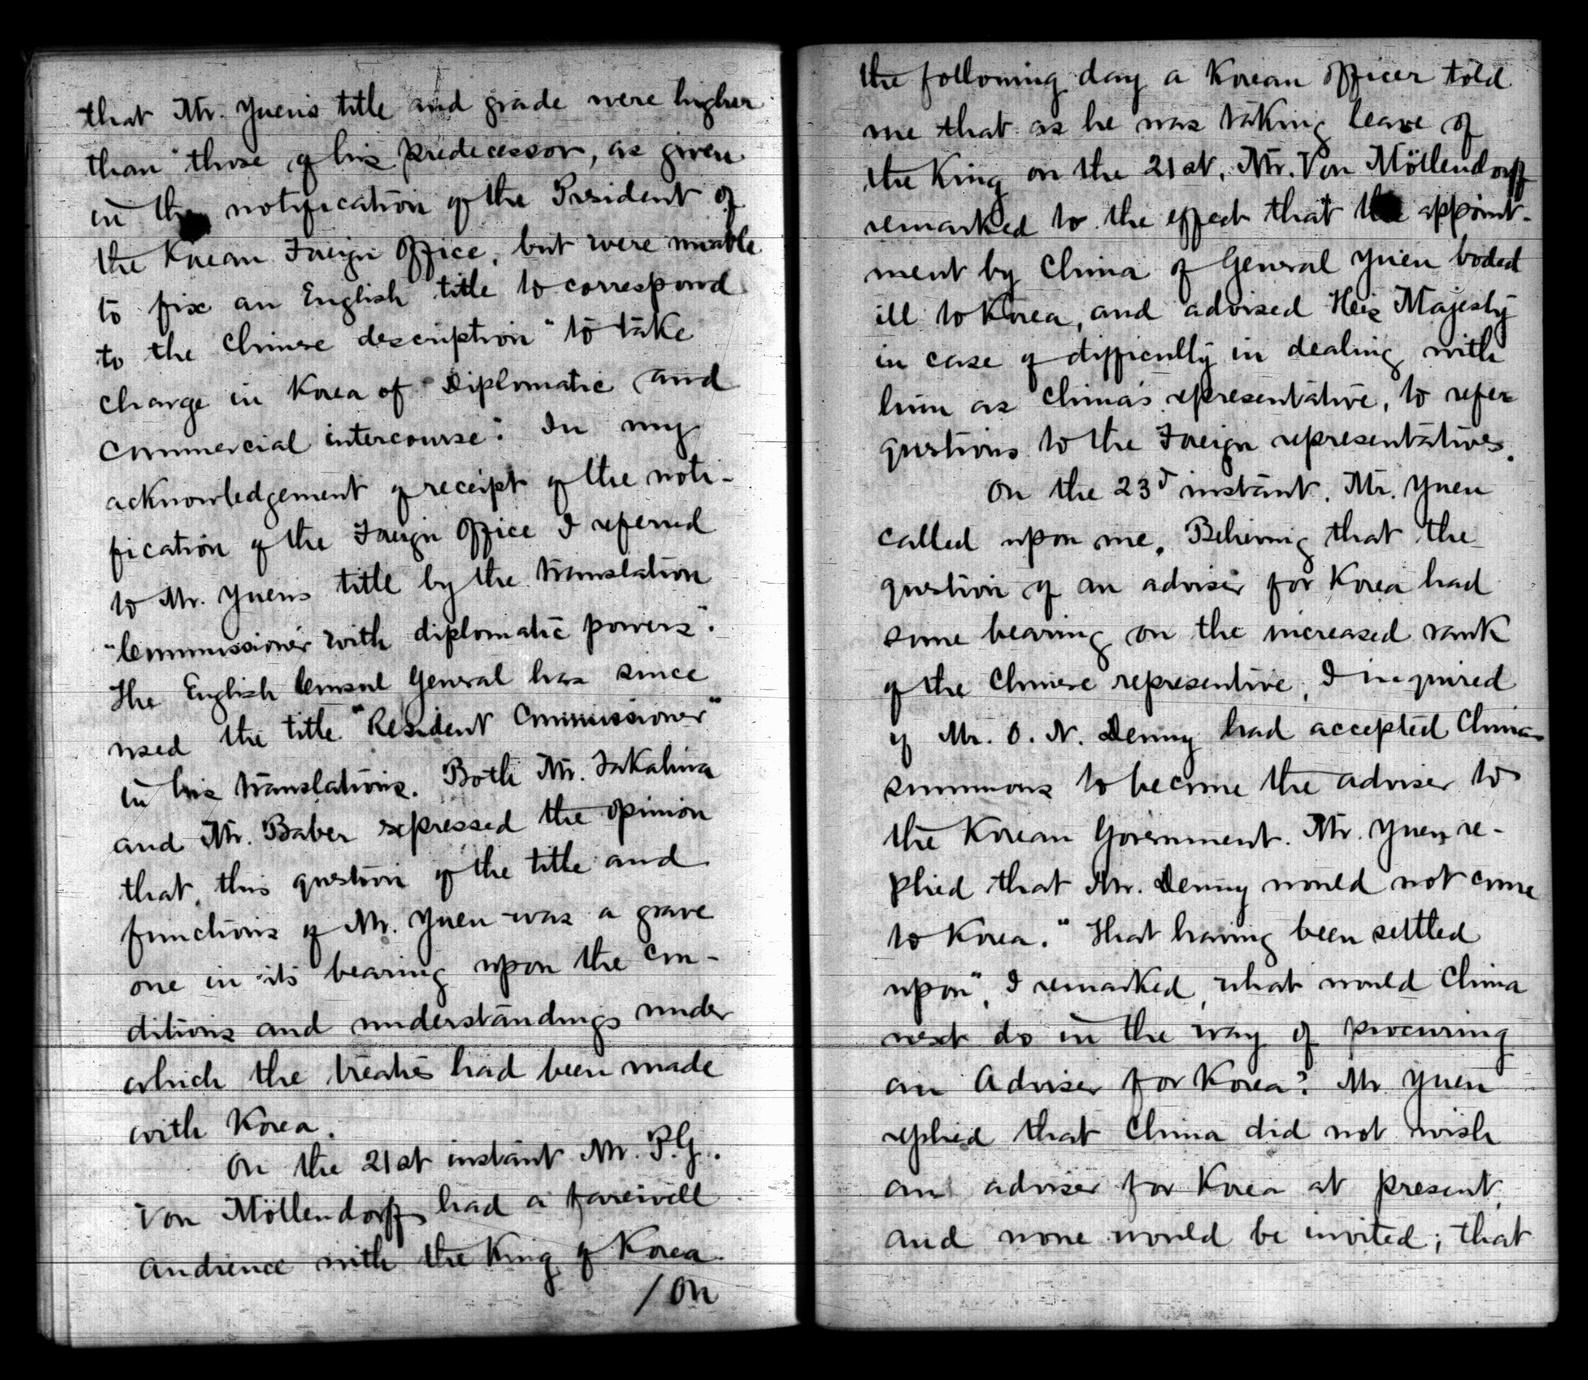 that Mr. Yuen's title and grade were higher
than those of his predecessor, as given
in the notification of the President of
the Korean Foreign Office, but were unable
to fix an English title to correspond
to the Chinese description "to take
charge in Korea of Diplomatic and
Commercial intercourse". In my
acknowledgement of receipt of the noti-
fication of the Foreign Office I referred
to Mr. Yuen's title by the translation
"Commissioner with diplomatic powers".
The English Consul General has since
used the title "Resident Commissioner"
in his translations. Both Mr. Takahira
and Mr. Baber expressed the opinion
that this question of the title and
functions of Mr. Yuen was a grave
one in its bearing upon the con-
ditions and understandings under
which the treaties had been made
with Korea.
On the 21st instant Mr. P.G.
Von Möllendorff had a farewell
audience with the King of Korea.
/ On
the following day a Korean Officer told
me that as he was taking leave of
the King on the 21st, Mr. Von Möllendorff
remarked to the effect that the appoint-
ment by China of General Yuen boded
ill to Korea, and advised His Majesty
in case of difficulty in dealing with
him as China's representative, to refer
questions to the Foreign representatives.
On the 23d instant, Mr. Yuen
called upon me. Believing that the
question of an adviser for Korea had
some bearing on the increased rank
of the Chinese representive, I inquired
if Mr. O. N. Denny had accepted China's
summons to become the adviser to
the Korean Government. Mr. Yuen re-
plied that Mr. Denny would not come
to Korea. "That having been settled
upon", I remarked, what would China
next do in the way of procuring
an Adviser for Korea? Mr Yuen
replied that China did not wish
an adviser for Korea at present,
and none would be invited; that